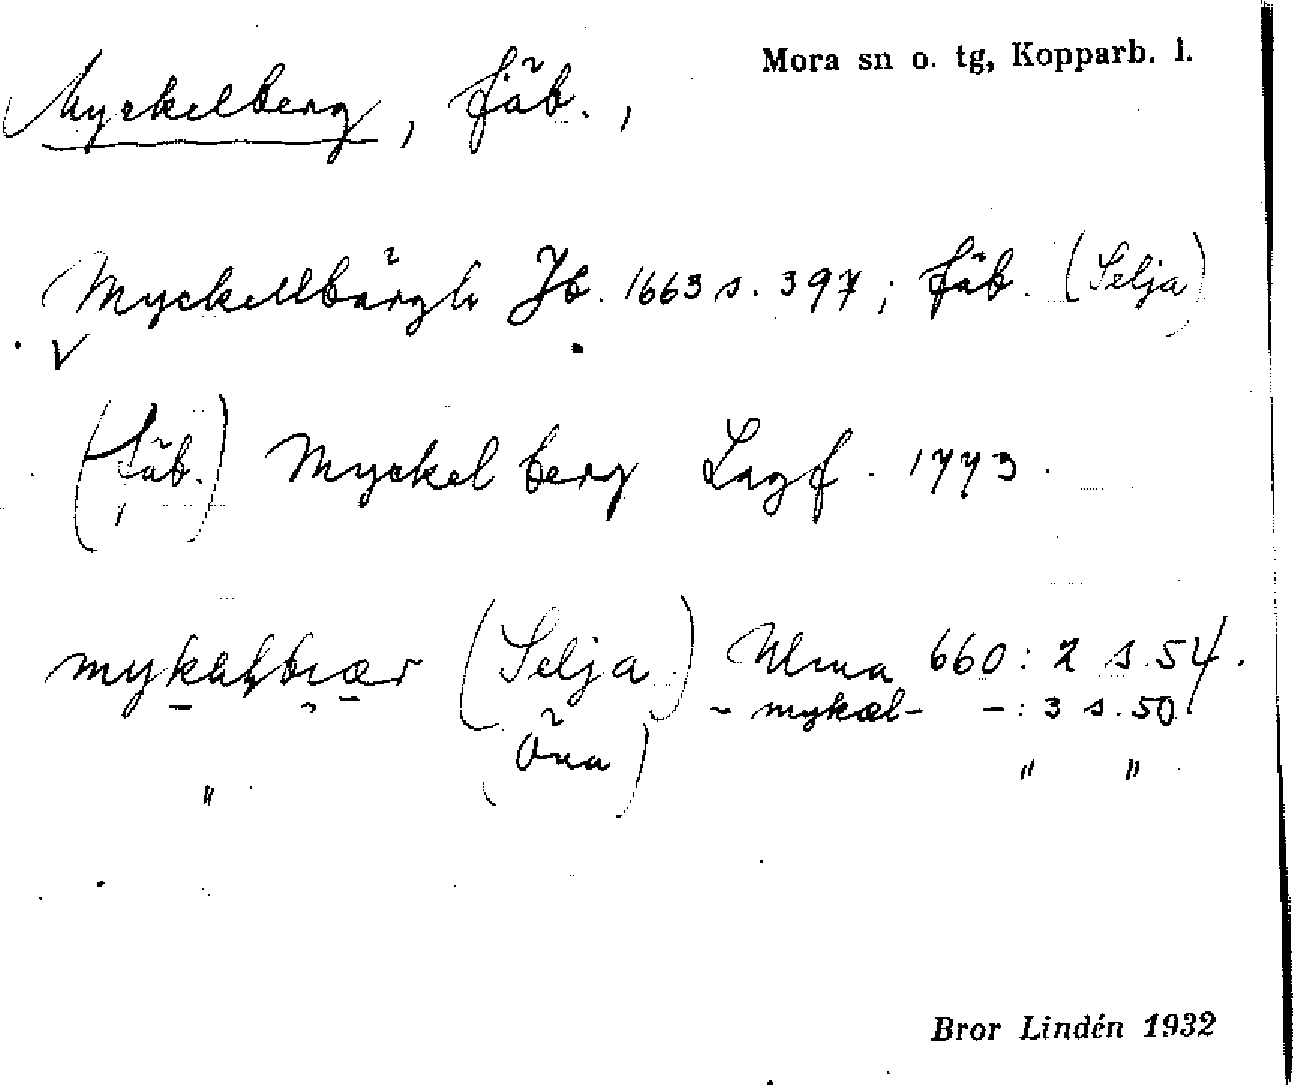 Mora sn o. tg, Kopparb. l.
Myckelberg, fäb.,
Myckellbärgh Jb. 1663 s. 397; fäb. (Selja)
(fäb.) Myckelberg Lagf. 1773.
(Selja) Ulma 660:2 s. 54.
- mykæl- -:3 s. 50
" (Öna) " "
Bror Lindén 1932